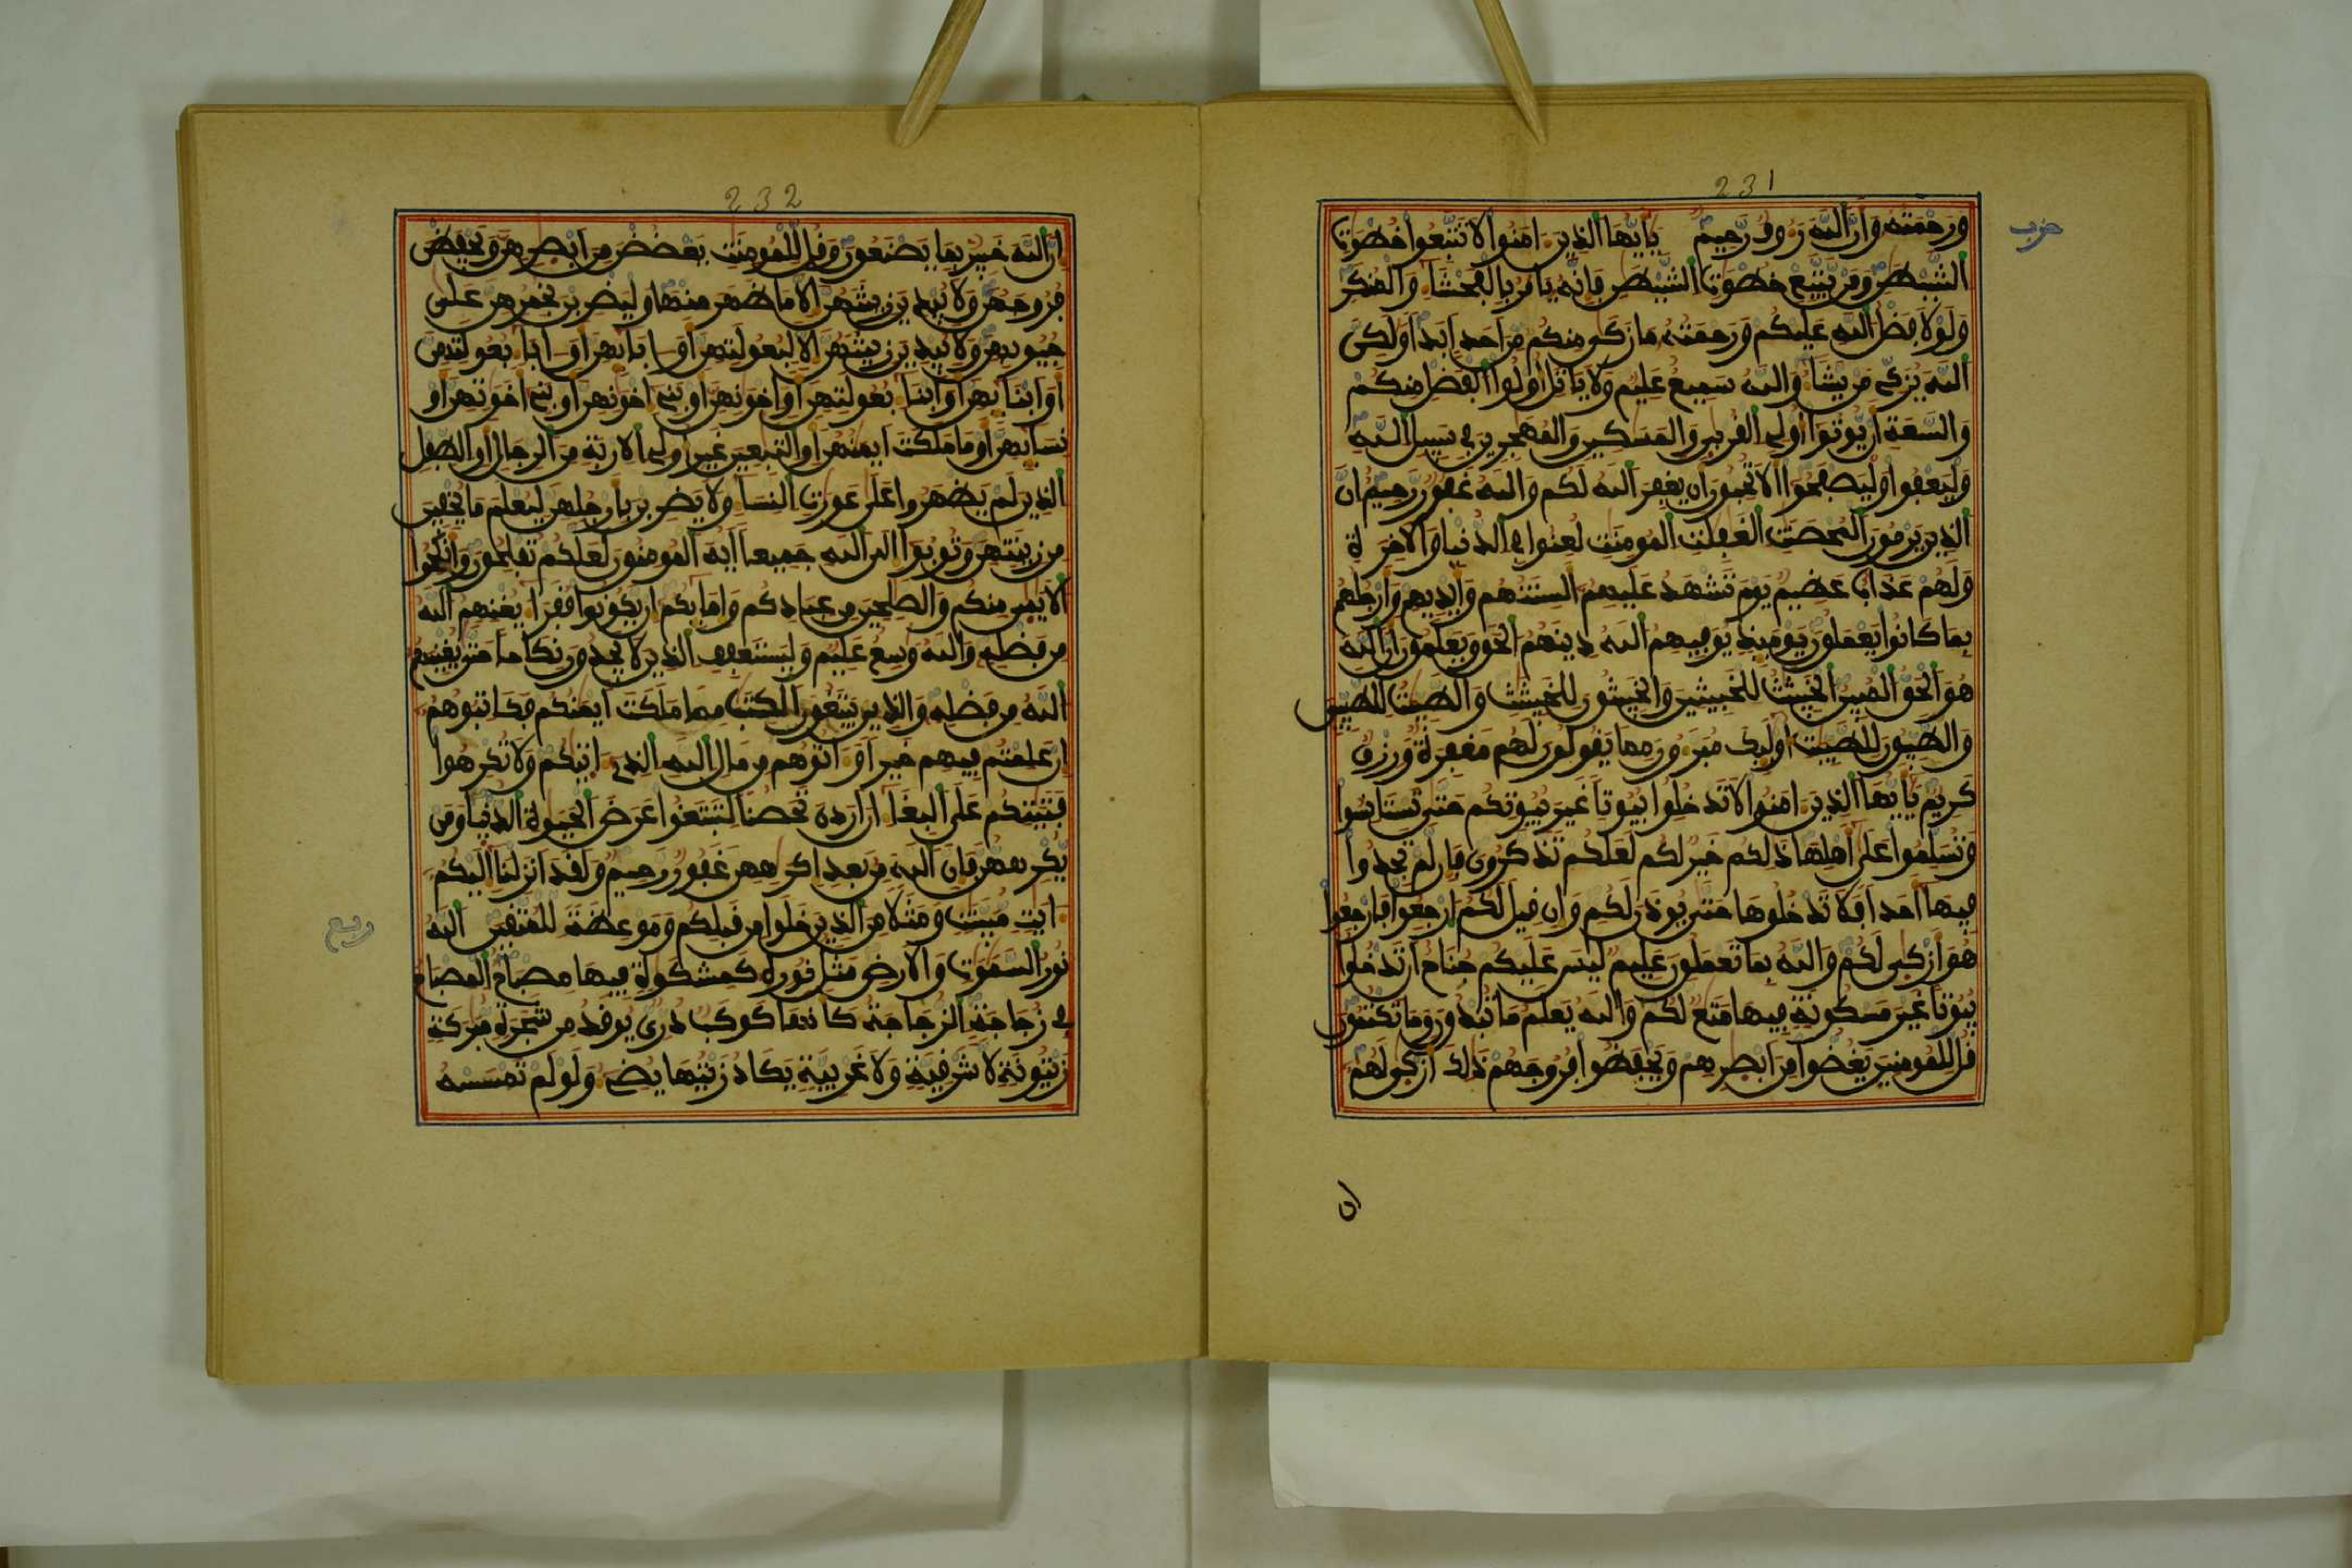 231
حزب
ورحمته وأن الله رءوف رحيم يأيها الذين ءامنوا لا تتبعوا خطوت
الشيطن ومن يتبع خطوت الشيطن فإنه يأمر بالفحشاء والمنكر
ولولا فضل الله عليكم ورحمته ما زكى منكم من أحد أبدا ولكن
الله يزكي من يشاء والله سميع عليم ولا ياتل أولوا الفضل منكم
والسعة أن يوتوا أولي القربى والمسكين والمهجرين في سبيل الله
وليعفوا وليصفحوا ألا تحبون أن يغفر الله لكم والله غفور رحيم إن
الذين يرمون المحصنت الغفلت المومنت لعنوا في الدنيا والاخرة
ولهم عذاب عظيم يوم تشهد عليهم ألسنتهم وأيديهم وأرجلهم
بما كانوا يعملون يومئذ يوفيهم الله دينهم الحق ويعلمون أن الله
هو الحق المبين الخبيثت للخبيثين والخبيثون للخبيثت والطيبت للطيبين
والطيبون للطيبت أولئك مبرءون مما يقولون لهم مغفرة ورزق
كريم يأيها الذين ءامنوا لا تدخلوا بيوتا غير بيوتكم حتى تستانسوا
وتسلموا على أهلها ذلكم خير لكم لعلكم تذكرون فإن لم تجدوا
فيها أحدا فلا تدخلوها حتى يوذن لكم وإن قيل لكم ارجعوا فارجعوا
هو أزكى لكم والله بما تعملون عليم ليس عليكم جناح أن تدخلوا
بيوتا غير مسكونة فيها متع لكم والله يعلم ما تبدون وما تكتمون
قل للمومنين يغضوا من أبصرهم ويحفظوا فروجهم ذلك أزكى لهم
232
إن الله خبير بما يصنعون وقل للمومنت يغضضن من أبصرهن ويحفظن
فروجهن ولا يبدين زينتهن إلا ما ظهر منها وليضربن بخمرهن على
جيوبهن ولا يبدين زينتهن إلا لبعولتهن أو ءابائهن أو ءاباء بعولتهن
أو أبنائهن أو أبناء بعولتهن أو إخونهن أو بني إخونهن أو بني أخوتهن أو
نسائهن أو ما ملكت أيمنهن أو التبعين غير أولي الاربة من الرجال أو الطفل
الذين لم يظهروا على عورت النساء ولا يضربن بأرجلهن ليعلم ما يخفين
من زينتهن وتوبوا إلى الله جميعا أيه المومنون لعلكم تفلحون وأنكحوا
الايمى منكم والصلحين من عبادكم وإمائكم إن يكونوا فقراء يغنهم الله
من فضله والله وسع عليم وليستعفف الذين لا يجدون نكاحا حتى يغنيهم
الله من فضله والذين يبتغون الكتب مما ملكت أيمنكم فكاتبوهم
إن علمتم فيهم خيرا وءاتوهم من مال الله الذي ءاتيكم ولا تكرهوا
فتيتكم على البغاء ان اردن تحصنا لتبتغوا عرض الحيوة الدنيا ومن
يكرههن فإن الله من بعد إكرههن غفور رحيم ولقد أنزلنا إليكم
ءايت مبينت ومثلا من الذين خلوا من قبلكم وموعظة للمتقين الله
ربع
نور السموت والارض مثل نوره كمشكوة فيها مصباح المصباح
في زجاجة الزجاجة كأنها كوكب دري يوقد من شجرة مبركة
زيتونة لا شرقية ولا غربية يكاد زيتها يضيء ولو لم تمسسه